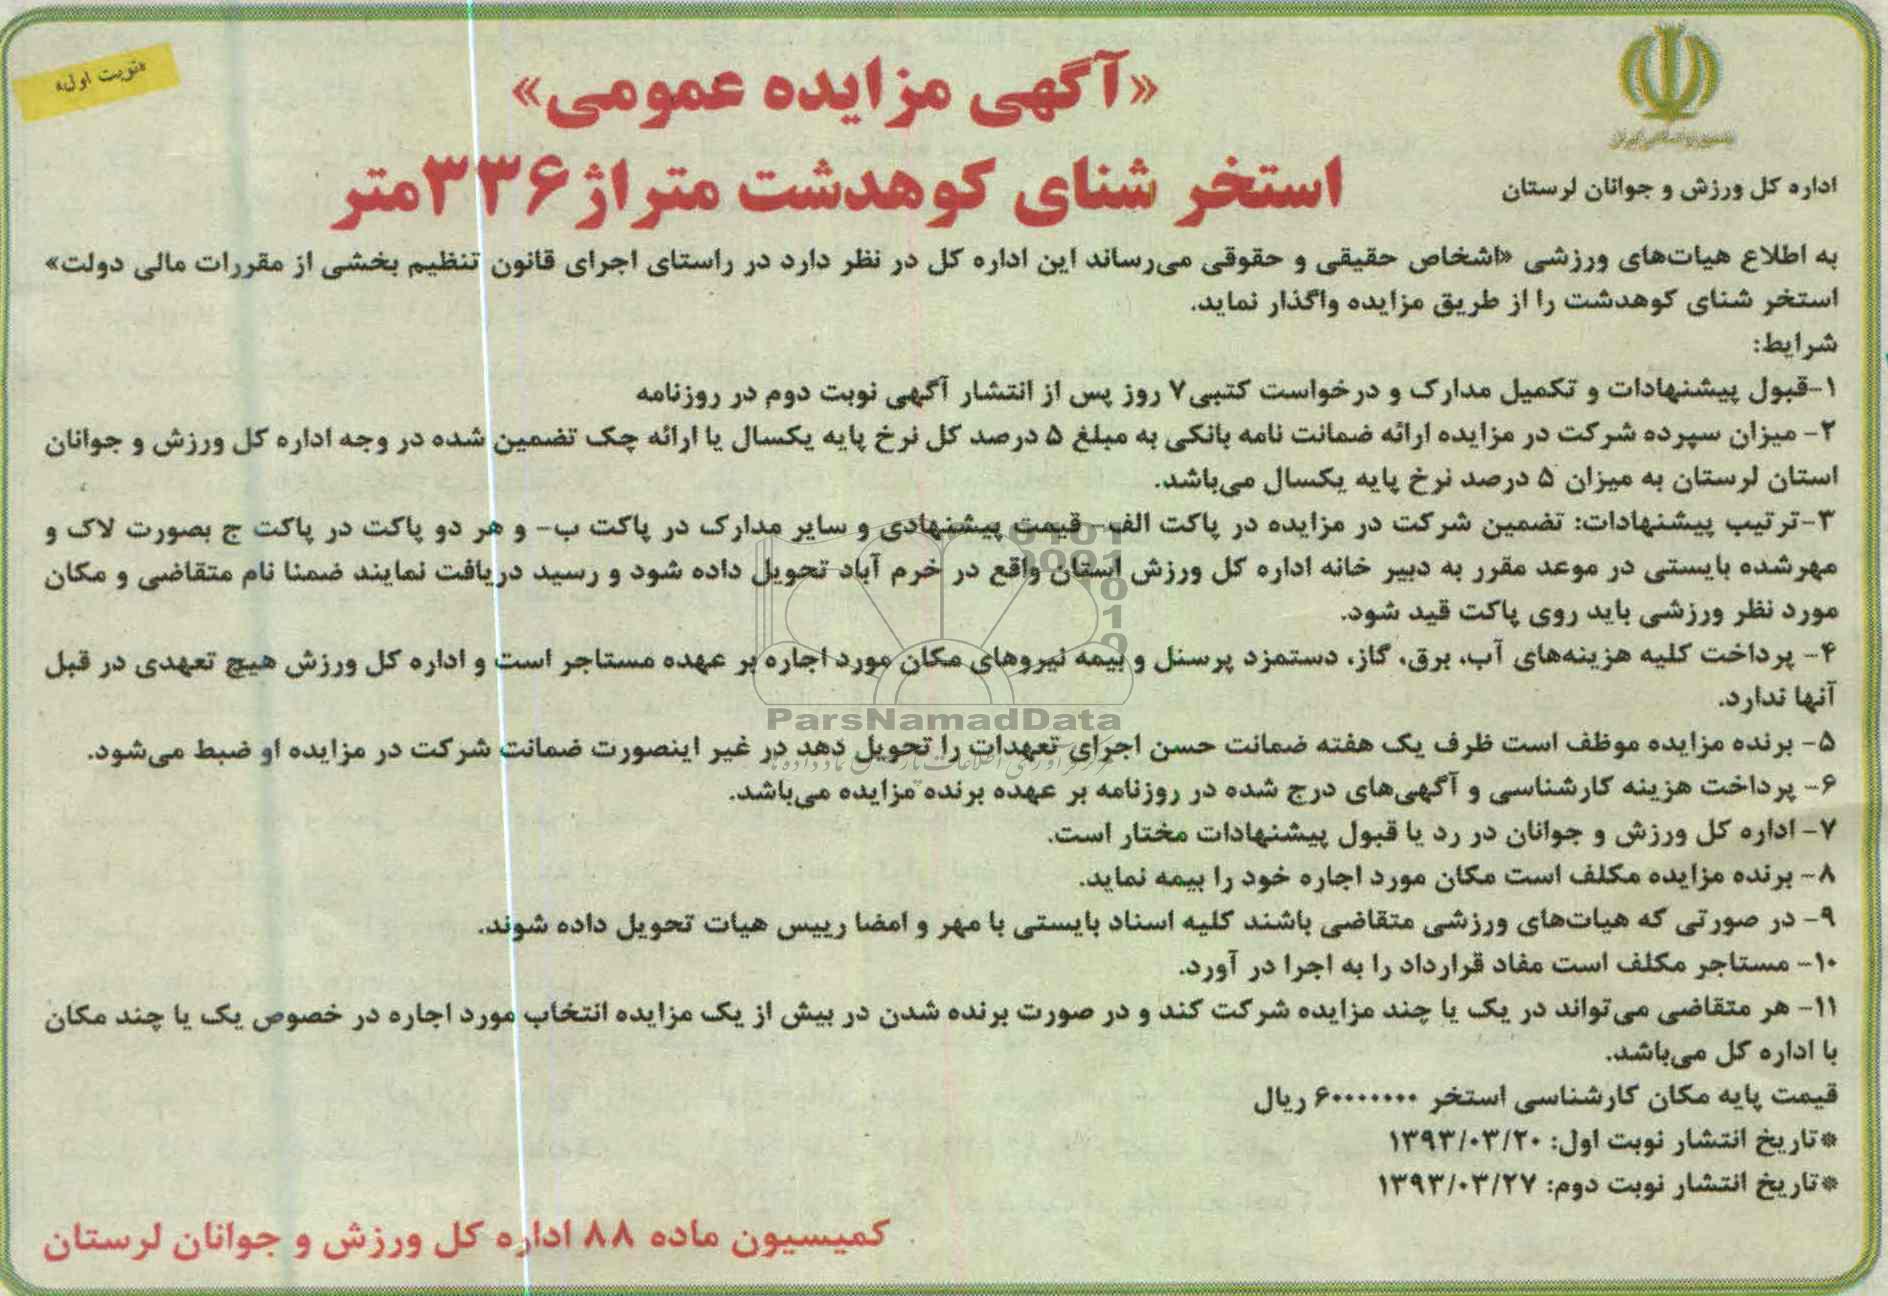 جمهوری اسلامی ایران
اداره کل ورزش و جوانان لرستان
«نوبت اول»
«آگهی مزایده عمومی»
استخر شنای کوهدشت متراژ ۳۳۶متر
به اطلاع هیات‌های ورزشی «اشخاص حقیقی و حقوقی می‌رساند این اداره کل در نظر دارد در راستای اجرای قانون تنظیم بخشی از مقررات مالی دولت»
استخر شنای کوهدشت را از طریق مزایده واگذار نماید.
شرایط:
۱-قبول پیشنهادات و تکمیل مدارک و درخواست کتبی۷ روز پس از انتشار آگهی نوبت دوم در روزنامه
۲- میزان سپرده شرکت در مزایده ارائه ضمانت نامه بانکی به مبلغ ۵ درصد کل نرخ پایه یکسال یا ارائه چک تضمین شده در وجه اداره کل ورزش و جوانان
استان لرستان به میزان ۵ درصد نرخ پایه یکسال می‌باشد.
۳-ترتیب پیشنهادات: تضمین شرکت در مزایده در پاکت الف- قیمت پیشنهادی و سایر مدارک در پاکت ب- و هر دو پاکت در پاکت ج بصورت لاک و
مهرشده بایستی در موعد مقرر به دبیر خانه اداره کل ورزش استان واقع در خرم آباد تحویل داده شود و رسید دریافت نمایند ضمنا نام متقاضی و مکان
مورد نظر ورزشی باید روی پاکت قید شود.
۴- پرداخت کلیه هزینه‌های آب، برق، گاز، دستمزد پرسنل و بیمه نیروهای مکان مورد اجاره بر عهده مستاجر است و اداره کل ورزش هیچ تعهدی در قبل
آنها ندارد.
ParsNamadData
۵- برنده مزایده موظف است ظرف یک هفته ضمانت حسن اجرای تعهدات را تحویل دهد در غیر اینصورت ضمانت شرکت در مزایده او ضبط می‌شود.
۶- پرداخت هزینه کارشناسی و آگهی‌های درج شده در روزنامه بر عهده برنده مزایده می‌باشد.
۷- اداره کل ورزش و جوانان در رد یا قبول پیشنهادات مختار است.
۸- برنده مزایده مکلف است مکان مورد اجاره خود را بیمه نماید.
۹- در صورتی که هیات‌های ورزشی متقاضی باشند کلیه اسناد بایستی با مهر و امضا رییس هیات تحویل داده شوند.
۱۰- مستاجر مکلف است مفاد قرارداد را به اجرا در آورد.
۱۱- هر متقاضی می‌تواند در یک یا چند مزایده شرکت کند و در صورت برنده شدن در بیش از یک مزایده انتخاب مورد اجاره در خصوص یک یا چند مکان
با اداره کل می‌باشد.
قیمت پایه مکان کارشناسی استخر ۶۰۰۰۰۰۰۰ ریال
*تاریخ انتشار نوبت اول: ۱۳۹۳/۰۳/۲۰
*تاریخ انتشار نوبت دوم: ۱۳۹۳/۰۳/۲۷
کمیسیون ماده ۸۸ اداره کل ورزش و جوانان لرستان